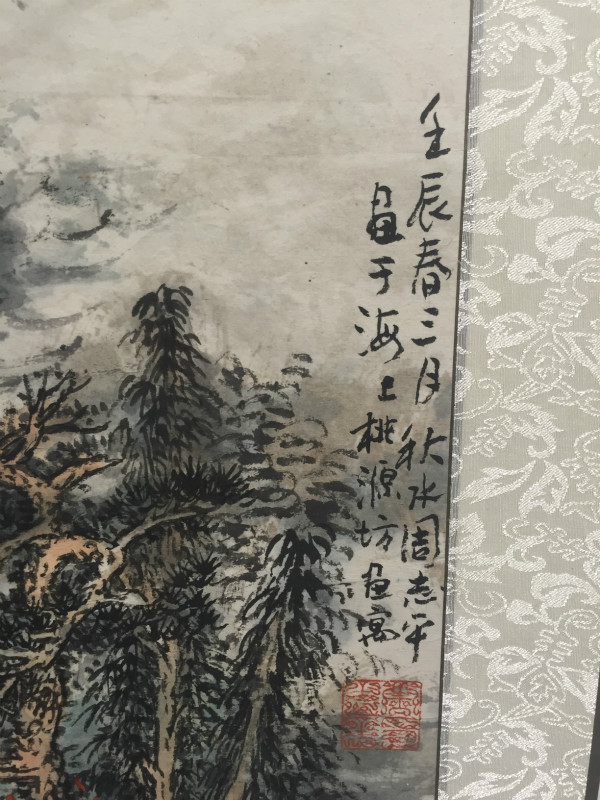 壬辰春三月秋水周志平
畫于海上桃源坊画寓